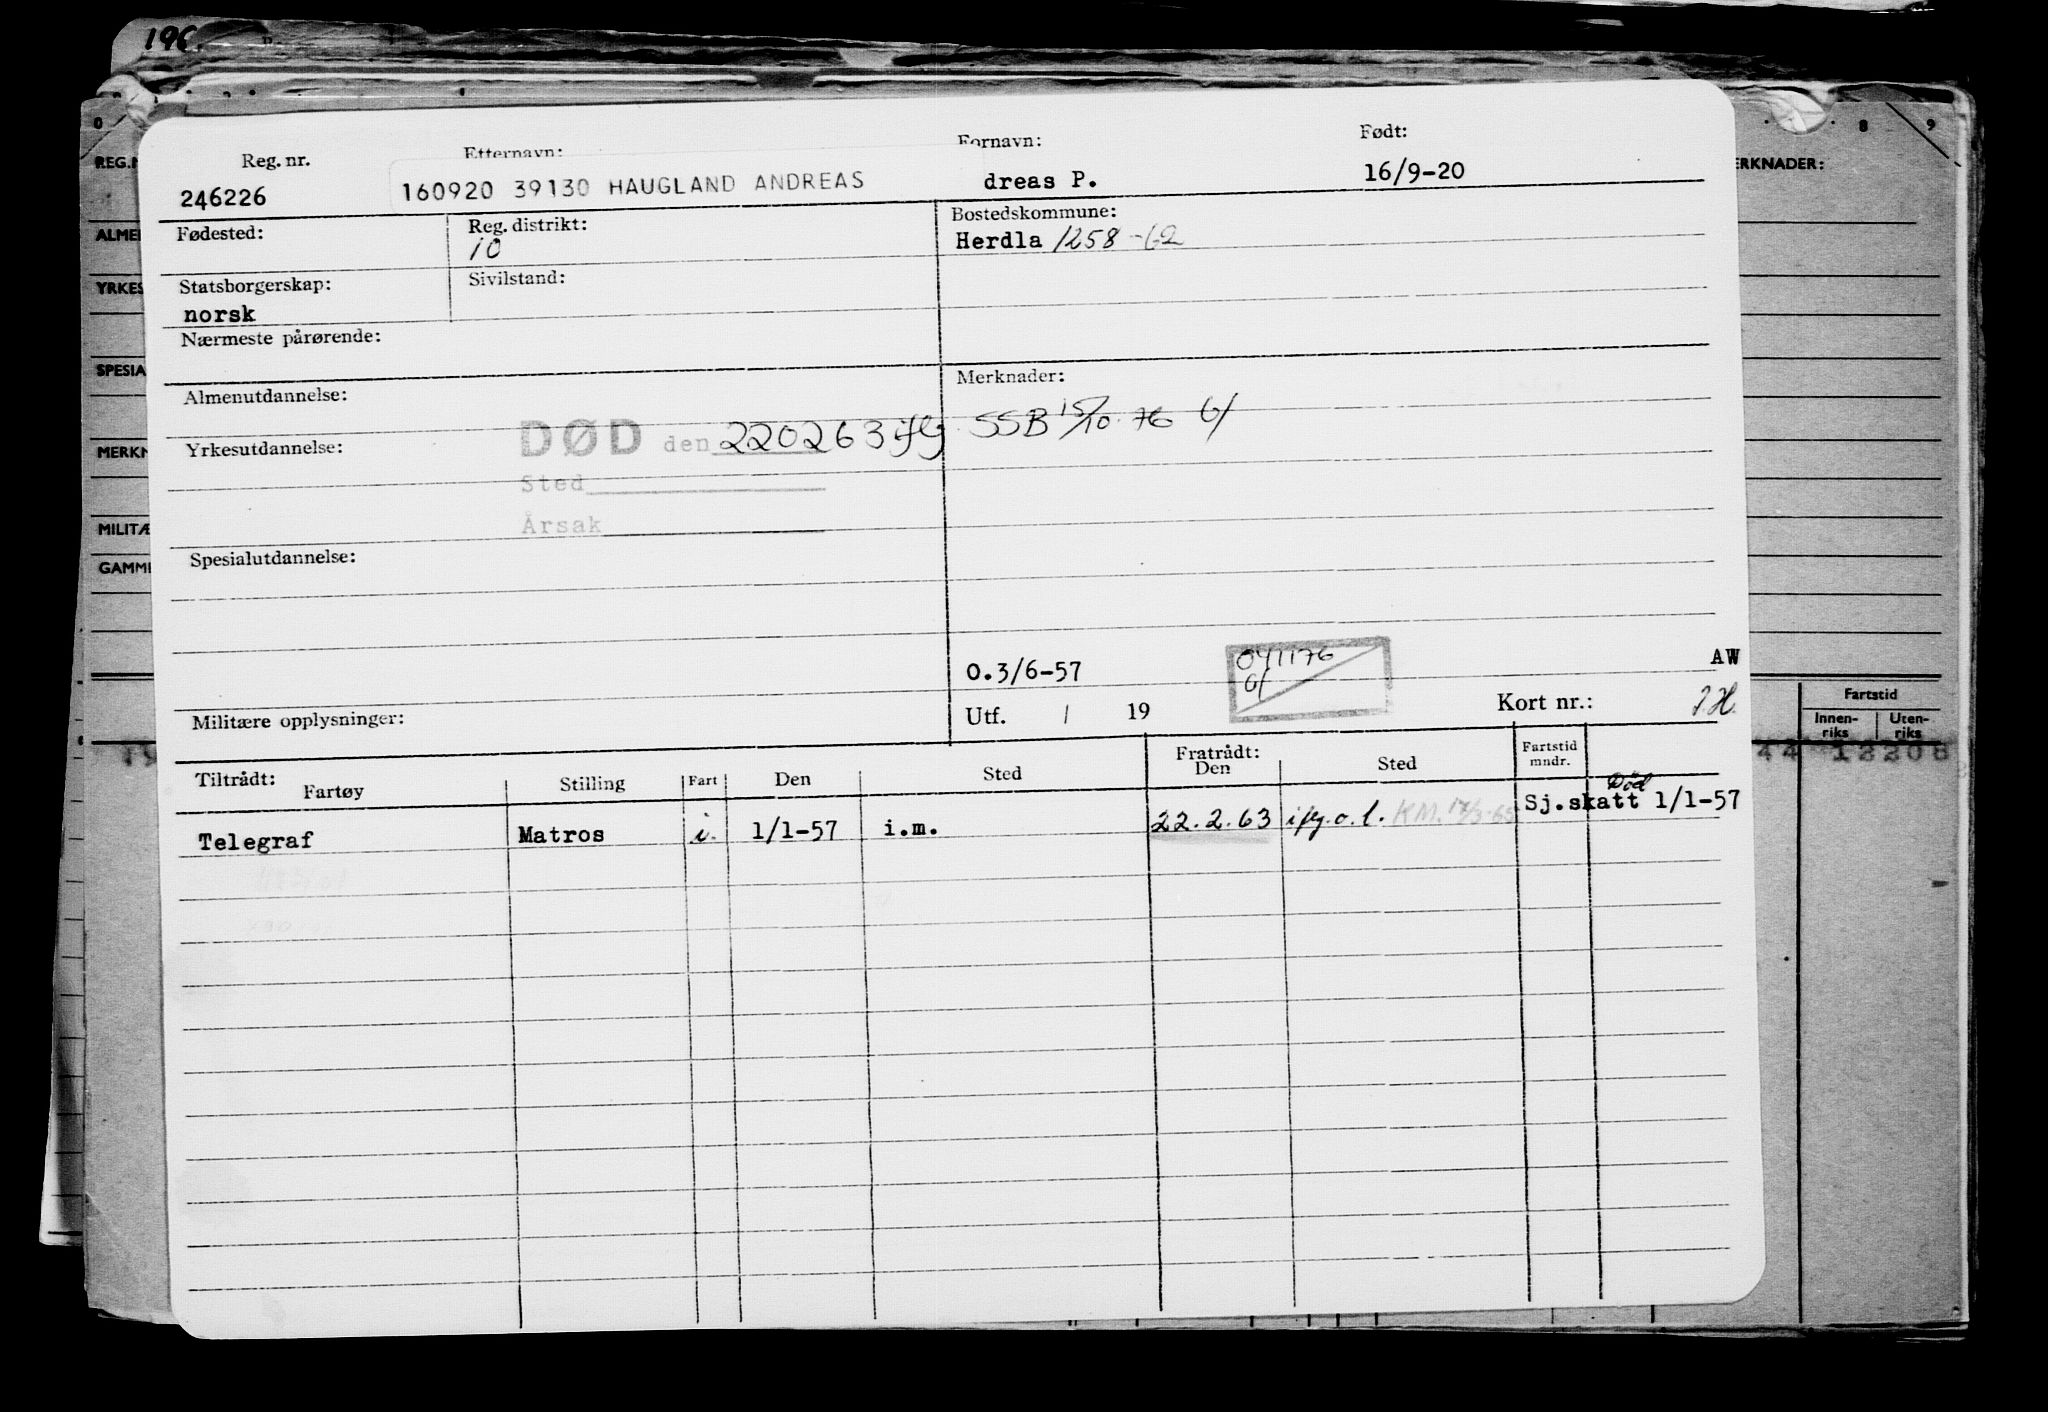 196
0 8 9
REG.N
ERKNADER:
ALMEN
YRKES
SPESIA
MERKN
MILITÆ
GAMME
Reg. nr. Etternavn: Fornavn: Født:
246226 160920 39130 HAUGLAND ANDREAS dreas P. 16/9-20
Fødested: Reg. distrikt: Bostedskommune:
10 Herdla 1258-62
Statsborgerskap: Sivilstand:
norsk
Nærmeste pårørende:
Almenutdannelse: Merknader:
Yrkesutdannelse: DØD den 220263 iflg. SSB 15/10.76
Sted
Årsak
Spesialutdannelse:
O.3/6-57 041176 AW
Militære opplysninger: Utf. / 19 Kort nr.:
Fartstid
Innen-riks Uten-riks
44 12208
Tiltrådt: Fratrådt: Fartstid mndr.
Fartøy Stilling Fart Den Sted Den Sted
Død
Telegraf Matros i. 1/1-57 i.m. 22.2.63 iflg.o.l. KM. Sj.skatt 1/1-57